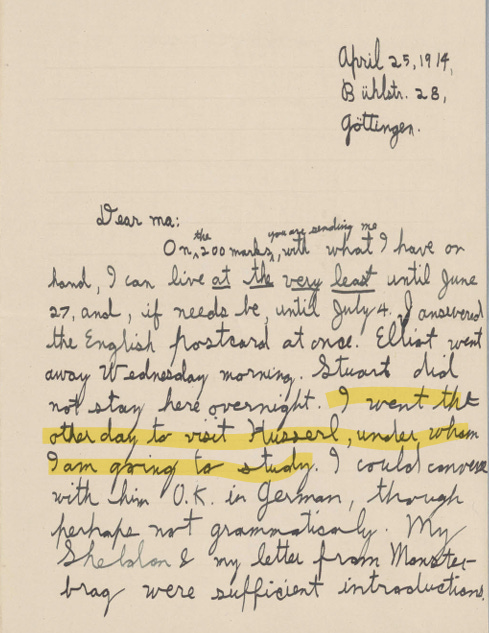 April 25, 1914,
Bühlstr. 28,
Göttingen.
Dear ma:
the you are sending me
On 200 marks, with what I have on
hand, I can live at the very least until June
27, and, if needs be, until July 4. I answered
the English postcard at once. Elliot went
away Wednesday morning. Stuart did
not stay here overnight. I went the
other day to visit Husserl, under whom
I am going to study. I could converse
with him O.K. in German, though
perhaps not grammaticaly. My
Sheldon & my letter from Monster-
brag were sufficient introductions.